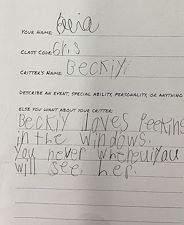 YOUR NAME:
CLASS CODE:
CRITTER'S NAME: Beckiy
DESCRIBE AN EVENT, SPECIAL ABILITY, PERSONALITY, OR ANYTHING
ELSE YOU WANT ABOUT YOUR CRITTER:
Beckiy Loves Peeking
in the windows.
You never when you
will see her.